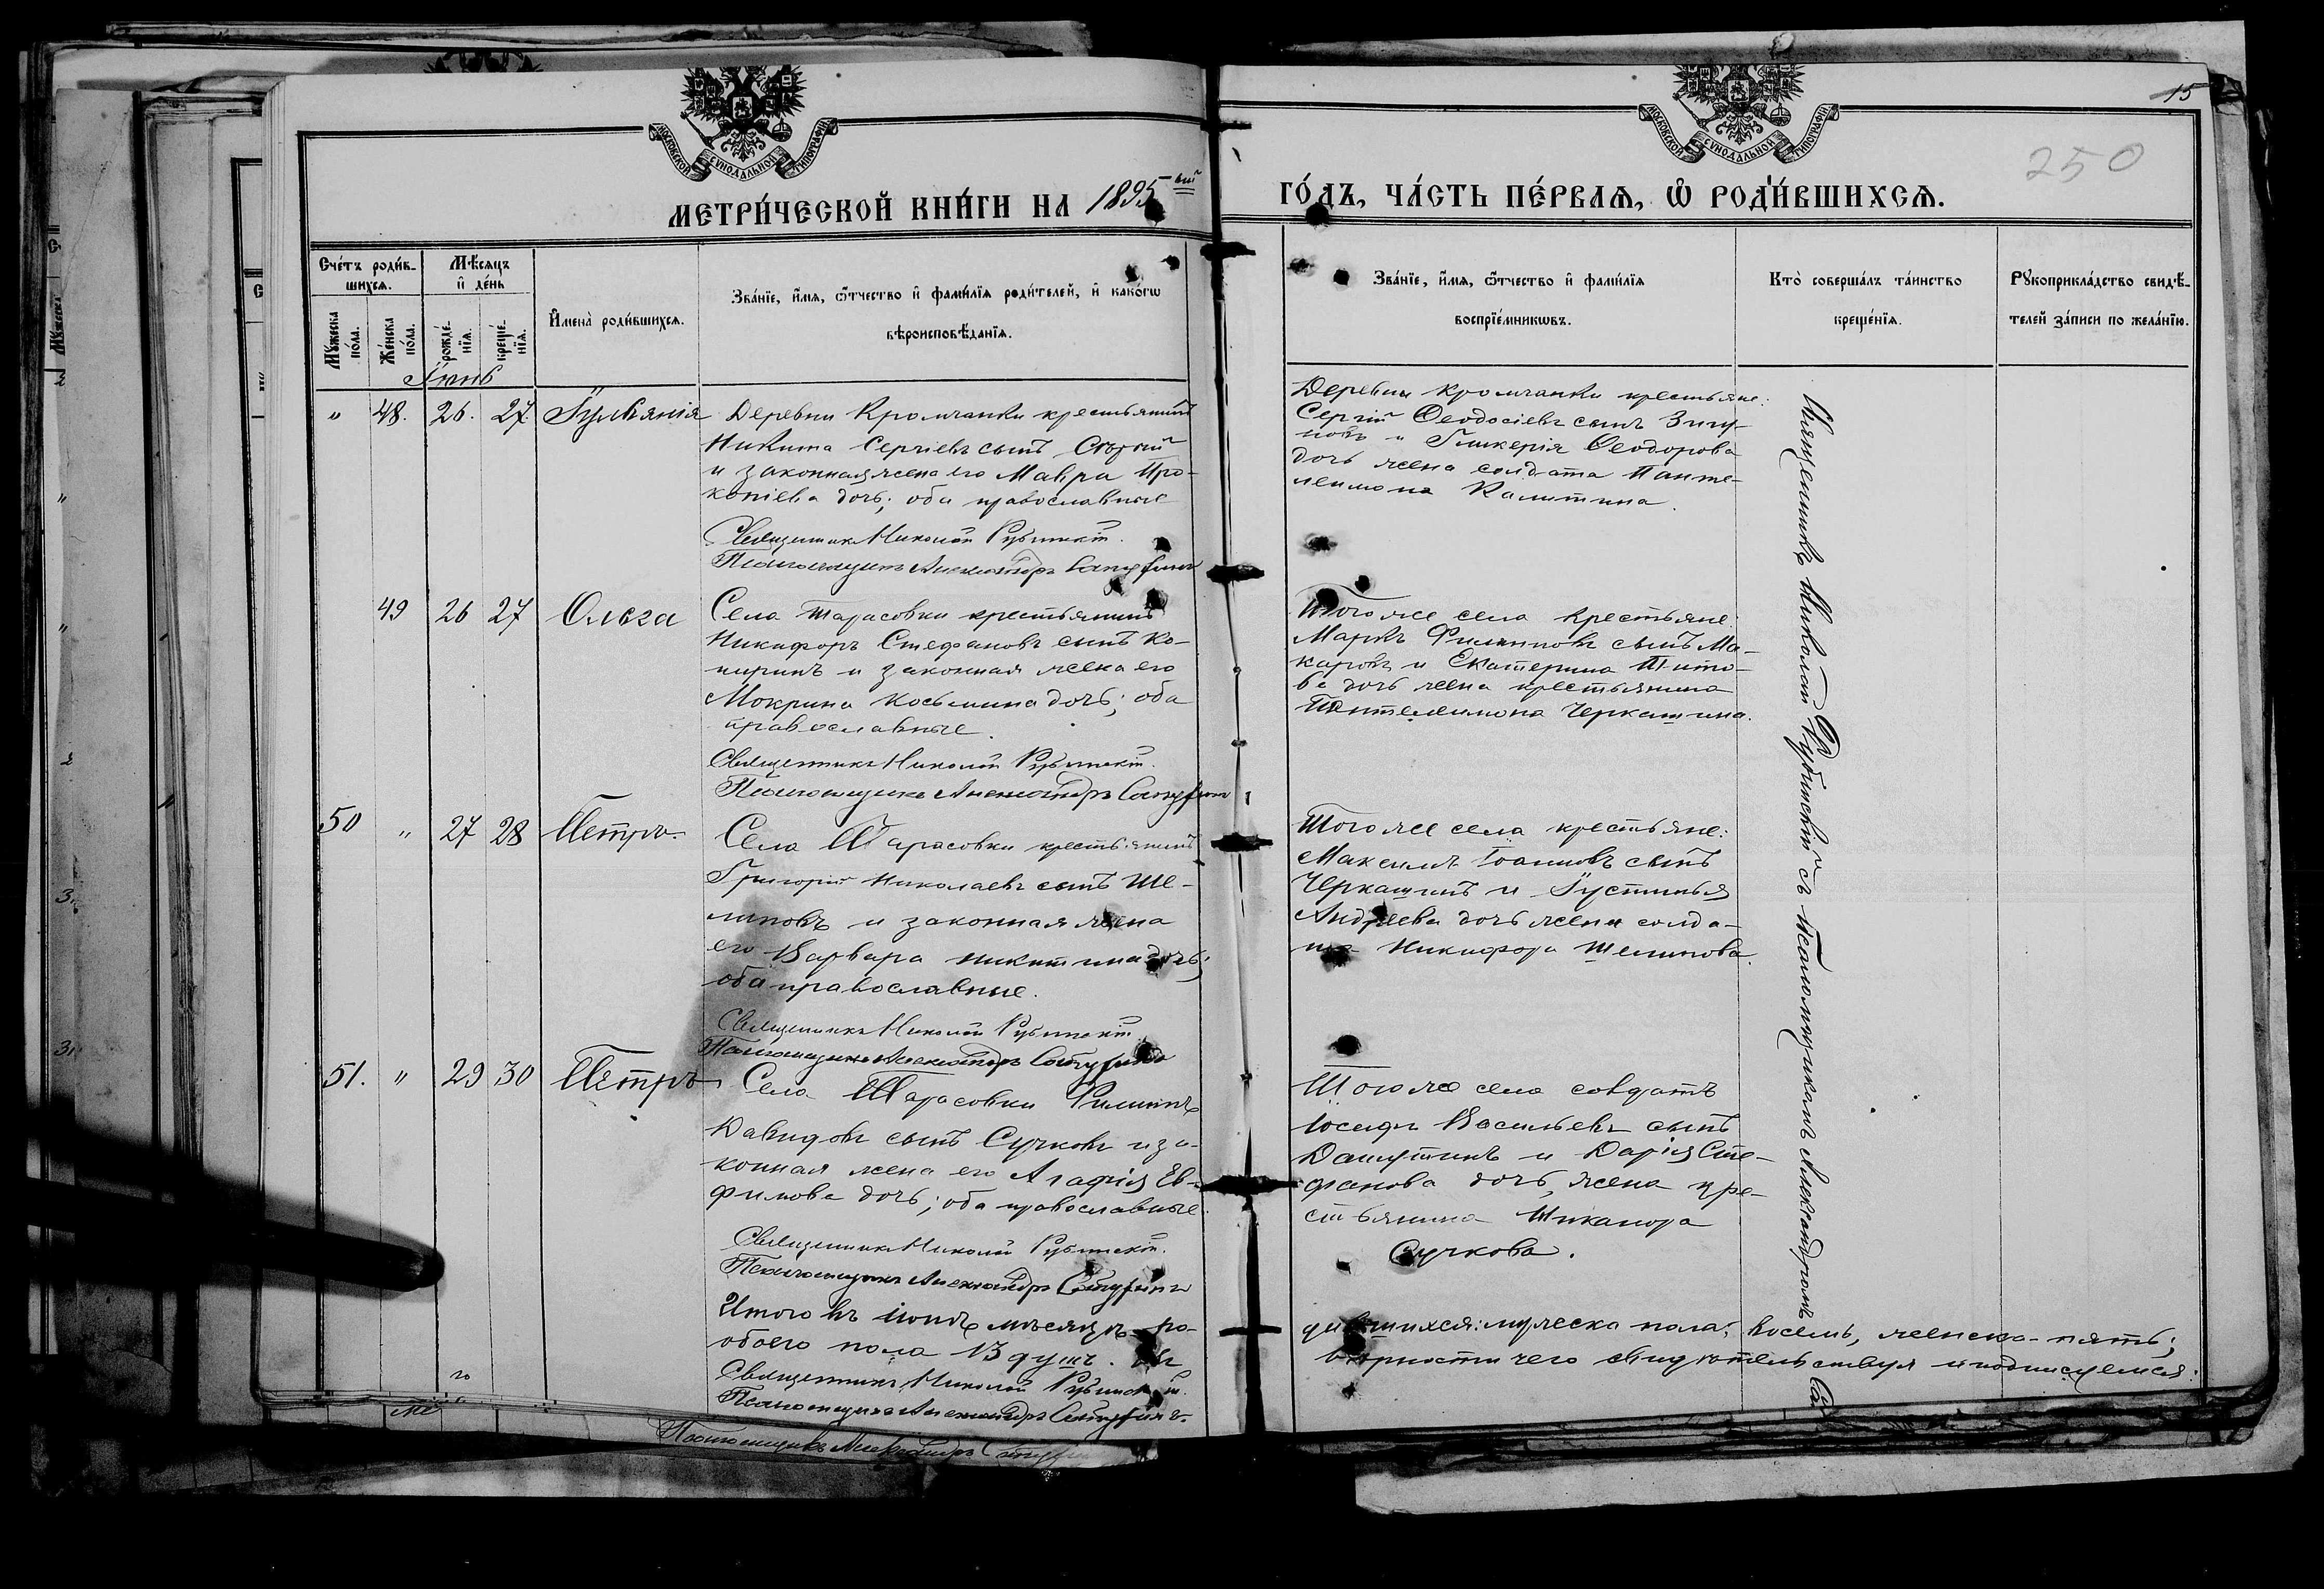 15
250
МОСКОВСКОЙ СѴНОДАЛЬНОЙ ТИПОГРАФІИ
МОСКОВСКОЙ СѴНОДАЛЬНОЙ ТИПОГРАФІИ
МЕТРИ́ЧЕСКОЙ КНИ́ГИ НА 1895ый ГО́ДЪ, ЧА́СТЬ ПЕ́РВАѦ, Ѽ РОДИ́ВШИХСѦ.
Сче́тъ роди́в-
шихсѧ.
Мꙋ́жеска по́ла.
Же́нска по́ла.
Мѣ́сѧцъ и҆ де́нь
рожде́-нїѧ.
креще́-нїѧ.
И҆мена̀ роди́вшихсѧ.
Зва́нїе, и҆́мѧ, ѻ҆́тчество и҆ фами́лїѧ роди́телей, и҆ како́гѡ
вѣроисповѣ́данїѧ.
Зва́нїе, и҆́мѧ, ѻ҆́тчество и҆ фами́лїѧ
воспрїе́мникѡвъ.
Кто̀ соверша́лъ та́инство
креще́нїѧ.
Рꙋкоприкла́дство свидѣ́-
телей за́писи по жела́нїю.
Іюнь
" 48. 26. 27. Іуліанія
Деревни Кромчанки крестьянинъ
Никита Сергіевъ сынъ
и законная жена его Мавра Про-
копіева дочь; оба православные
Священникъ Николай Рубинскій.
Псаломщикъ Александръ
Деревни Кромчанки крестьяне:
Сергій Ѳеодосіевъ сынъ Зину-
новъ и Гликерія Ѳеодорова
дочь жена солдата Панте-
леимона Калитина.
49 26 27 Ольга
Села Тарасовки крестьянинъ
Никифоръ Стефановъ сынъ Ко-
ниринъ и законная жена его
Мокрина Косьмина дочь; оба
православные.
Священникъ Николай Рубинскій.
Псаломщикъ Александръ
Того же села крестьяне:
Маркъ Филиповъ сынъ Ма-
каровъ и Екатерина Тито-
ва дочь жена крестьянина
Пантелеимона Черкашина.
50 " 27 28 Петръ.
Села Тарасовки крестьянинъ
Григорій Николаевъ сынъ Ше-
липовъ и законная жена
его Варвара Никитина дочь;
оба православные.
Священникъ Николай Рубинскій.
Псаломщикъ Александръ
Того же села крестьяне:
Максимъ Іоанновъ сынъ
Черкашинъ и Іустинья
Андреева дочь жена солда-
та Никифора Шелипова.
51. " 29 30 Петръ
Села Тарасовки Филиппъ
Давидовъ сынъ Сучковъ и за-
конная жена его Агафія Ев-
фимова дочь; оба православные.
Священникъ Николай Рубинскій.
Псаломщикъ Александръ
Того же села солдатъ
Іосифъ Васильевъ сынъ
Дашутинъ и Дарія Сте-
фанова дочь, жена кре-
стьянина Никанора
Сучкова.
Священникъ Николай Рубинскій съ псаломщикомъ Александромъ
Итого въ іюнѣ мѣсяцѣ ро-дившихся: мужеска пола: восемь, женска - пять;
обоего пола 13 душъ. Въ вѣрности чего свидѣтельствуя и подписуемся:
Священникъ Николай Рубинскій.
Псаломщикъ Александръ
Псаломщикъ Александръ